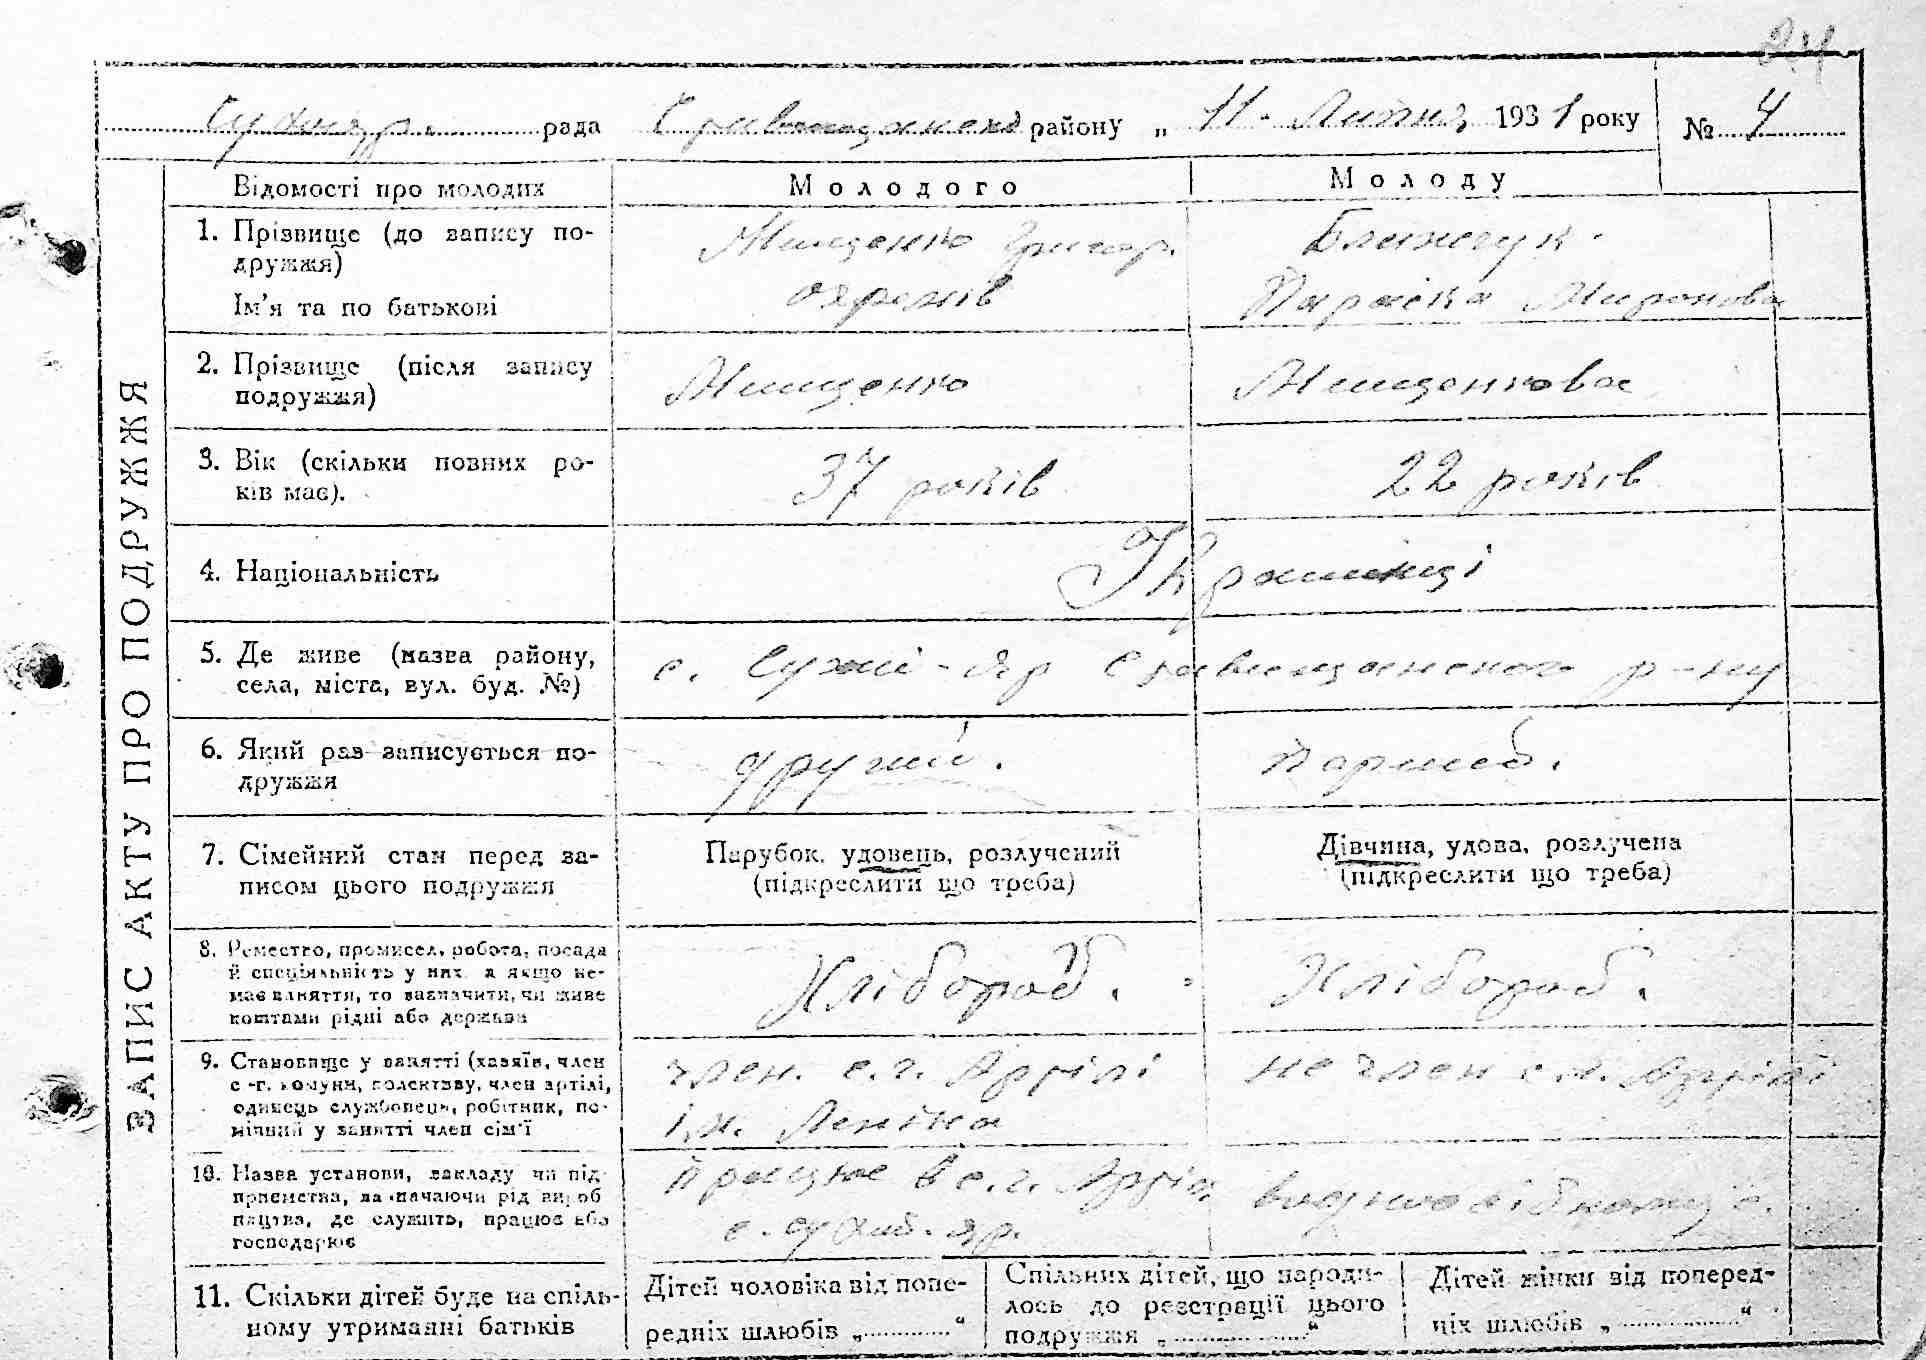 24
Сухояр. рада Ставищанськ району „ 11 - Липня 1931 року № 4
ЗАПИС АКТУ ПРО ПОДРУЖЖЯ
Відомості про молодих Молодого Молоду
1. Прізвище (до запису по- Мищенко Григор. Блинчук.
дружжя)
Ім'я та по батькові Охремів Параска Миронова
2. Прізвище (після запису Мищенко Мищенкова
подружжя)
3. Вік (скільки повних ро- 37 років 22 років
ків має).
4. Національність Українці
5. Де живе (назва району, с. Сухий-Яр Ставищанского р-ну
села, міста, вул. буд. №)
6. Який раз записується по- другий. Первий.
дружжя
7. Сімейний стан перед за- Парубок, удовець, розлучений Дівчина, удова, розлучена
писом цього подружжя (підкреслити що треба) (підкреслити що треба)
8. Ремество, промисел, робота, посада Хлібороб. Хлібороб.
й спеціяльність у них, а якщо не-
має заняття, то зазначити, чи живе
коштами рідні або держави
9. Становище у занятті (хазяїн, член член. с.г. Артілі не член с.г. Артілі
с.-г. комуни, колективу, член артілі, ім. Леніна
одинець службовець, робітник, по-
мічний у занятті член сім'ї
10. Назва установи, закладу чи під- працює в с.г. Артіл
приємства, зазначаючи рід вироб с. Сухий-яр.
ництва, де служить, працює або
господарює
11. Скільки дітей буде на спіль- Дітей чоловіка від попе- Спільних дітей, що народи- Дітей жінки від поперед-
ному утриманні батьків редніх шлюбів „ “ лось до реєстрації цього ніх шлюбів „ “
подружжя „ “